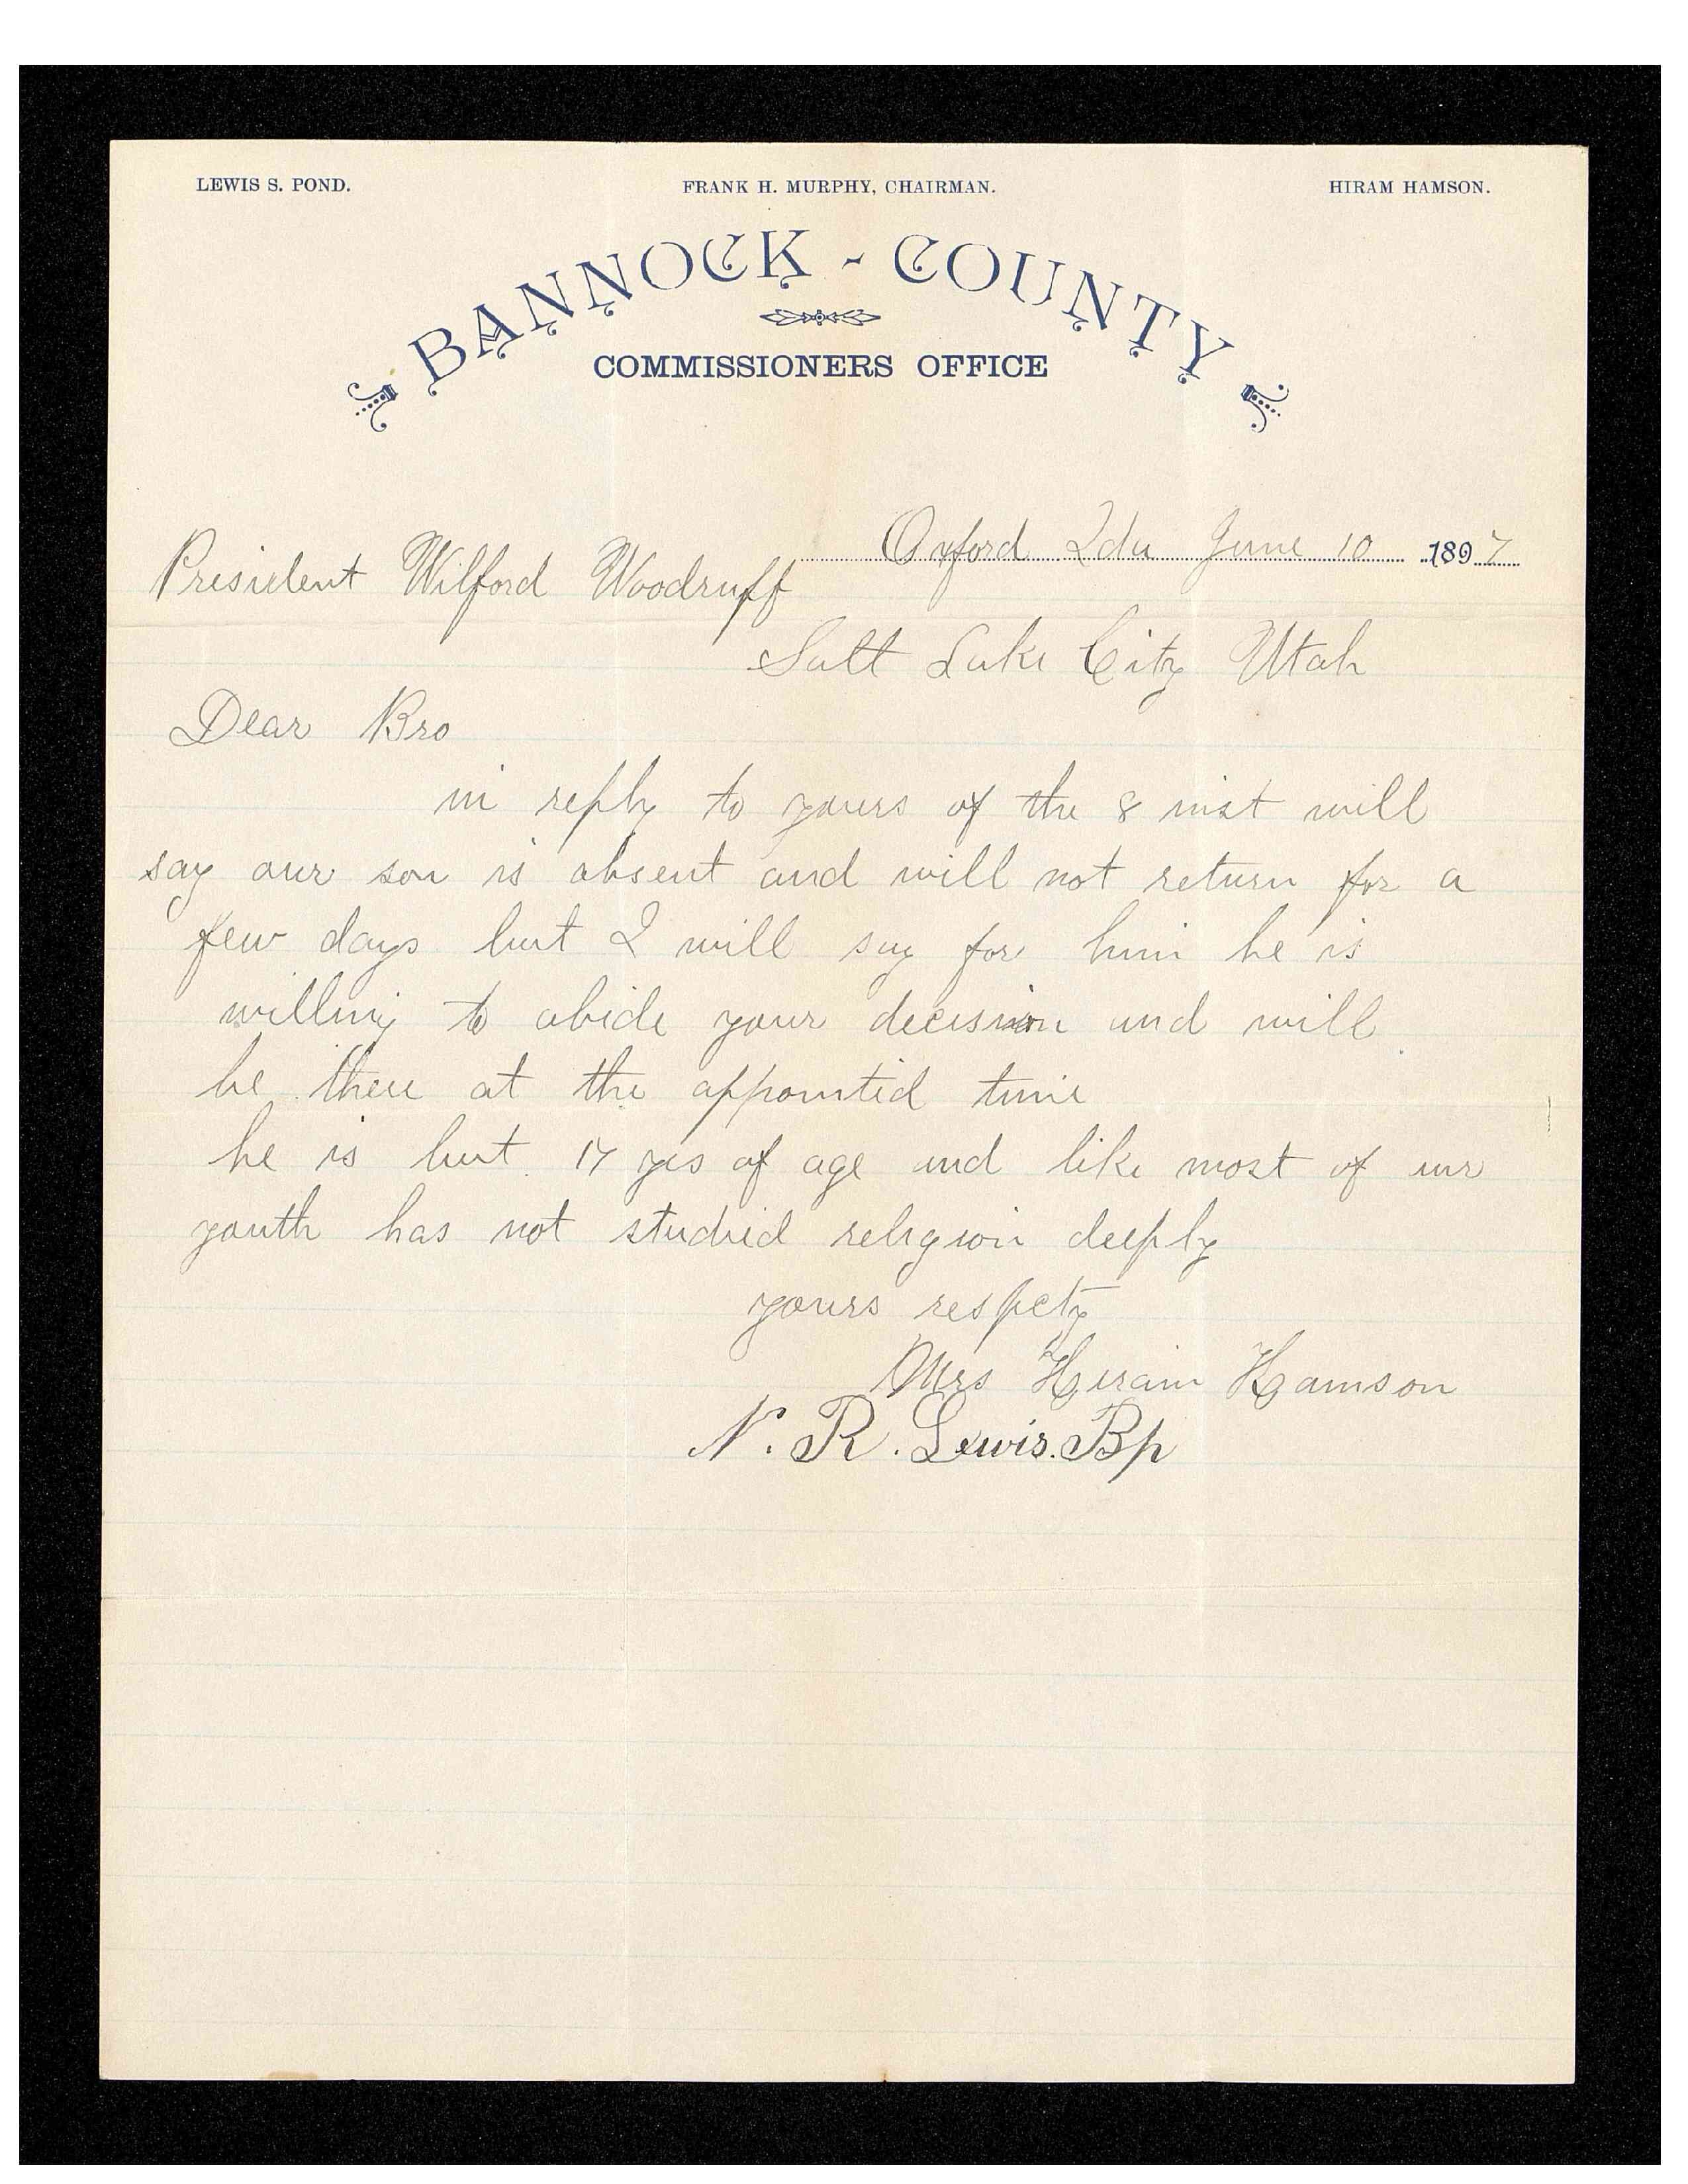 LEWIS S. POND. FRANK H. MURPHY, CHAIRMAN. HIRAM HAMSON.
BANNOCK - COUNTY
COMMISSIONERS OFFICE
Oxford Ida June 10 1897
President Wilford Woodruff
Salt Lake City Utah
Dear Bro
in reply to yours of the 8 inst will
say our son is absent and will not return for a
few days but I will say for him he is
willing to abide your decision and will
be there at the appointed time
he is but 17 yrs of age and like most of our
youth has not studied religion deeply
yours respcty
Mrs Hiram Hamson
N. R. Lewis. Bp